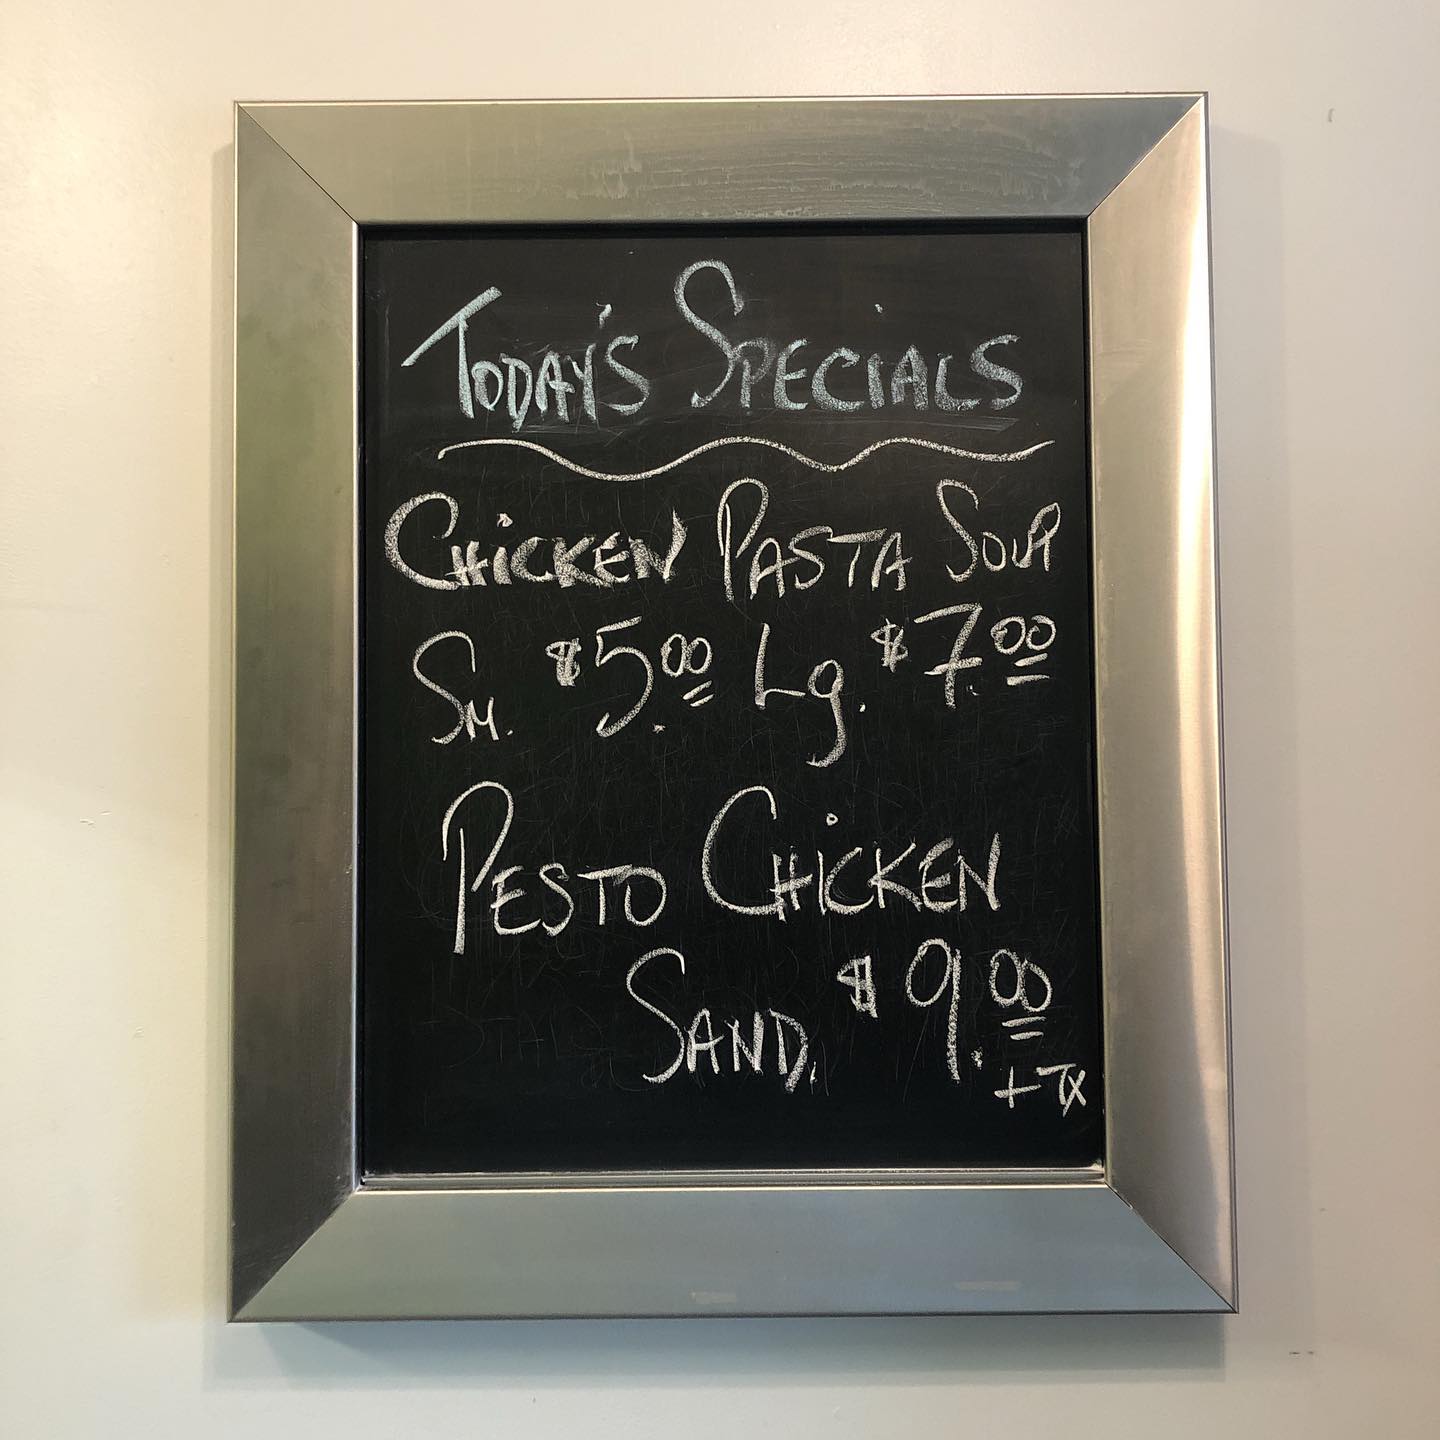 Today's Specials
Chicken Pasta Soup
Sm. $5.00 Lg. $7.00
Pesto Chicken
Sand. $9.00
+ Tx